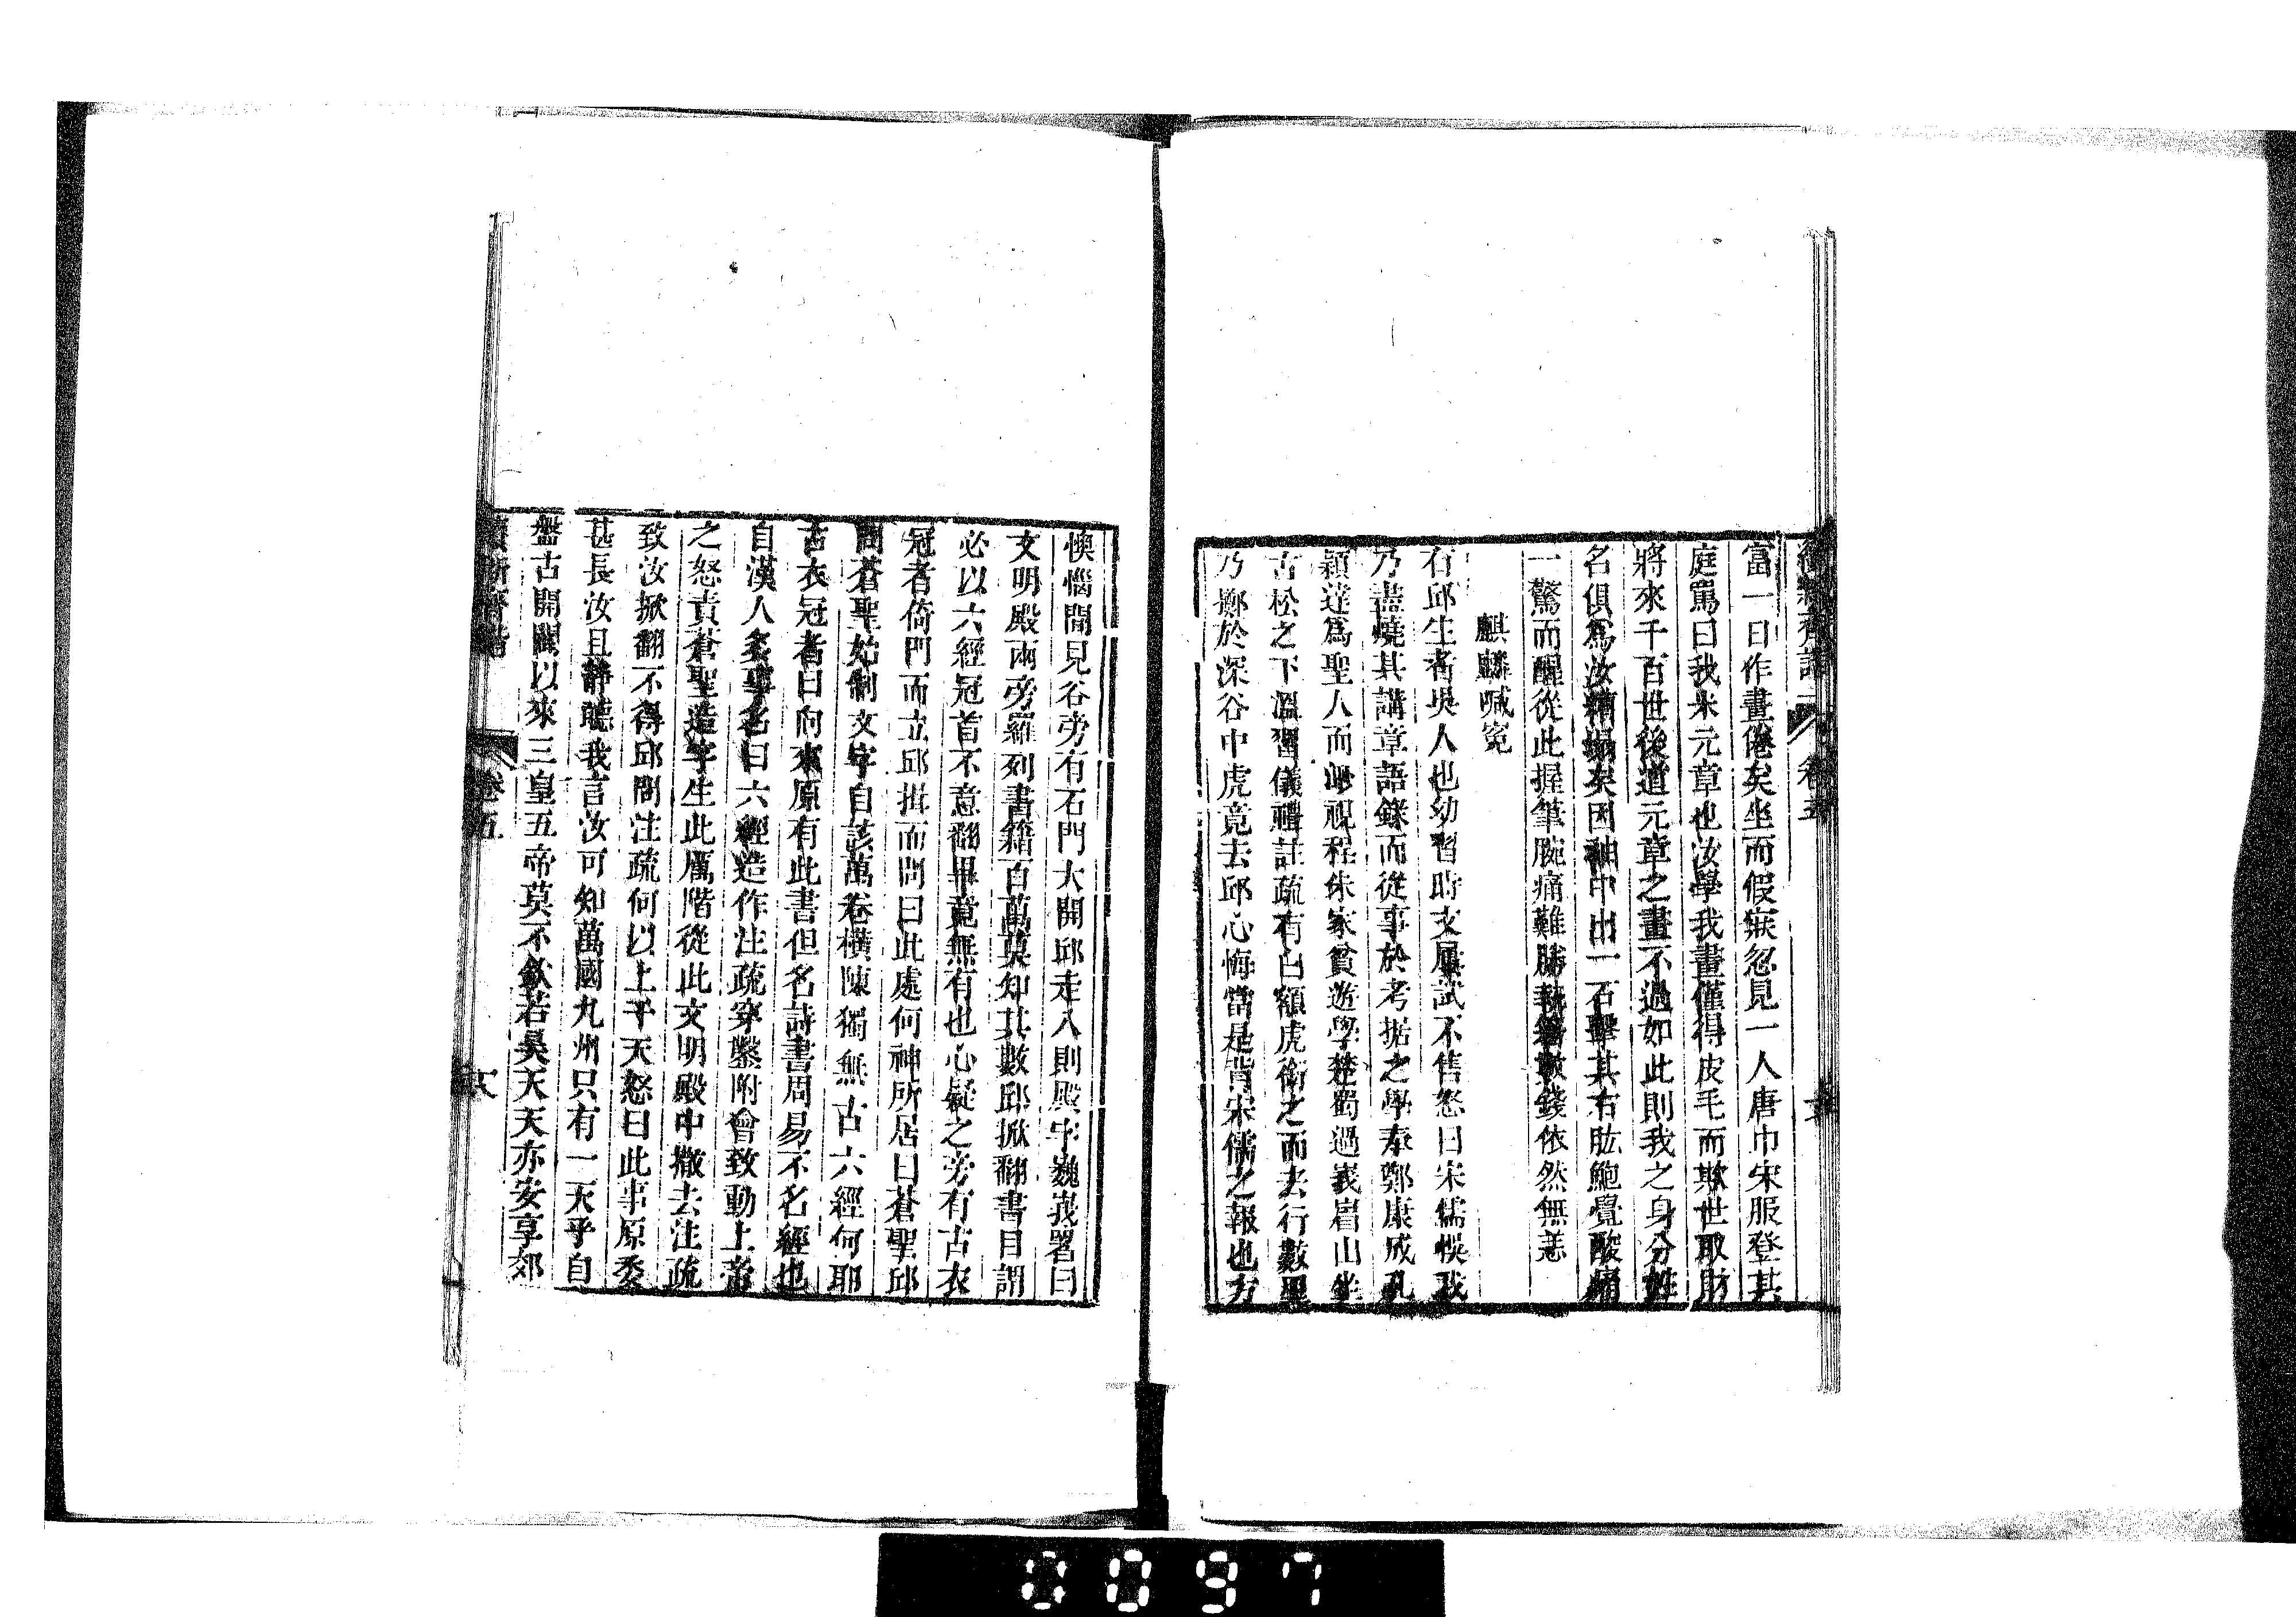 續新齊諧
卷五
富一日作畫倦矣坐而假寐忽見一人唐巾宋服登其
庭罵曰我米元章也汝學我畫僅得皮毛而欺世取財
將來千百世後道元章之畫不過如此則我之身分姓
名俱為汝糟塌矣因袖中出一石擊其右肱鮑覺酸痛
一驚而醒從此握筆腕痛難勝執籌數錢依然無恙
麒麟喊冤
右邱生者吳人也幼習時文屢試不售怒曰宋儒悞我
乃盡燒其講章語錄而從事於考据之學奉鄭康成孔
穎達為聖人而渺視程朱家貧遊學楚蜀過峩眉山坐
古松之下溫習儀禮註疏有白額虎銜之而去行數里
乃擲於深谷中虎竟去邱心悔當是背宋儒之報也方
懊惱間見谷旁有石門大開邱走入則殿宇巍峩署曰
文明殿兩旁羅列書籍百萬莫知其數邱掀翻書目謂
必以六經冠首不意翻畢竟無有也心疑之旁有古衣
冠者倚門而立邱揖而問曰此處何神所居曰蒼聖邱
問蒼聖始制文字自該萬卷橫陳獨無古六經何耶
古衣冠者曰向來原有此書但名詩書周易不名經也
自漢人多事名曰六經造作注疏穿鑿附會致動上帝
之怒責蒼聖造字生此厲階從此文明殿中撤去注疏
致汝掀翻不得邱問注疏何以上干天怒曰此事原委
甚長汝且靜聽我言汝可知萬國九州只有一天乎自
盤古開闢以來三皇五帝莫不欽若昊天天亦安享郊
續新齊諧
卷五